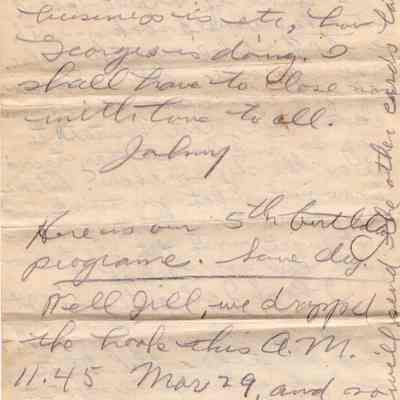 business is etc, how
George is doing. I
shall have to close now
with love to all.
Johny
Here is our 5th
programe. Save
Well Jill, we dropped
the hook this A.M.
11.45 Mar 29, and so
will send the other cards